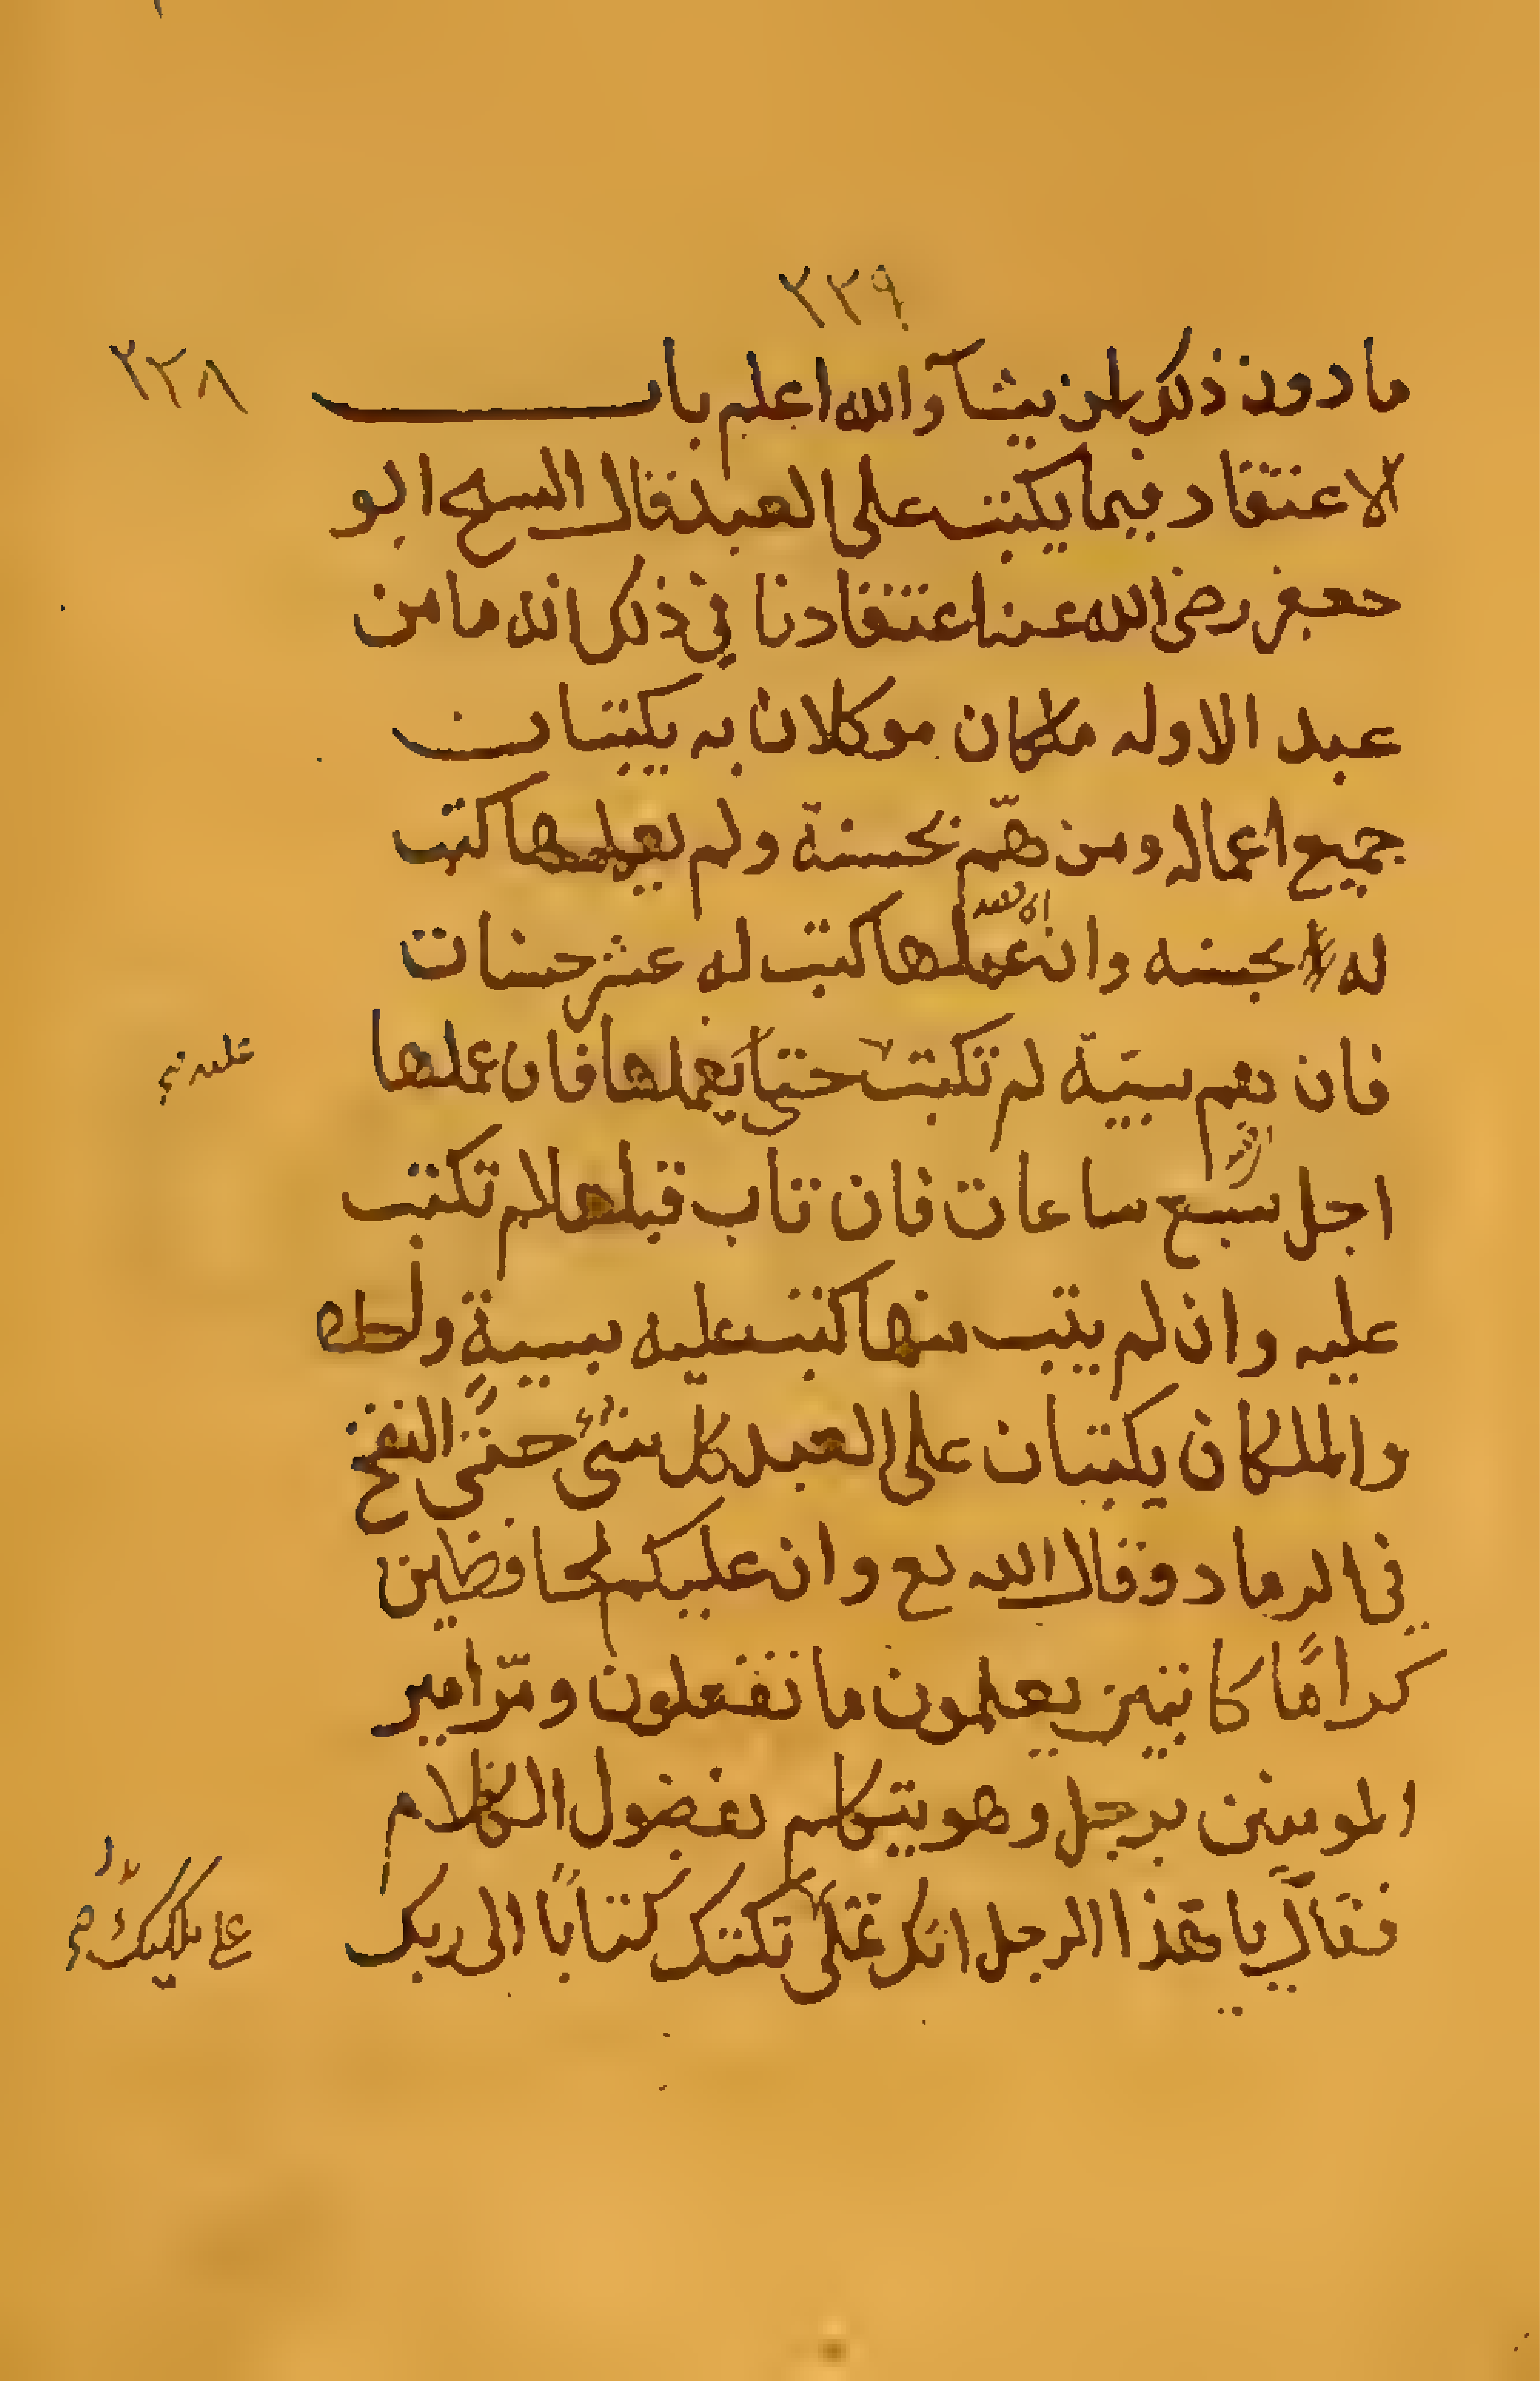 ٢٣٩
٢٣٨
ما دون ذلك لمن يشآ والله اعلم باب
الاعتقاد فيما يكتب على العبد قال الشيخ ابو
جعفر رضى الله عنه اعتقادنا في ذلك انه ما من
عبد الا وله ملكان موكلان به يكتبان
جميع اعماله ومن همّ بحسنة ولم يعملها كتب
له حسنه وان عملها كتب له عشر حسنات
فان هم بسيّة لم تكتب حتى يعملها فان عملها
اجل سبع ساعات فان تاب قبلها لم تكتب
عليه وان لم يتب منها كتب عليه سيية
والملكان يكتبان على العبد كل شئ حتى النفخ
في الرماد وقال الله تع وان عليكم لحافظين
كرامًا كاتبين يعلمون ما تفعلون ومرّ امير
المومنين برجل وهو يتكلم بفضول الكلام
فقال يا هذا الرجل انك تملى كتابًا الى ربك
على ملكيك